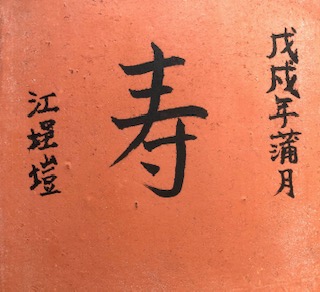 戊戌年蒲月
寿
江埕塏